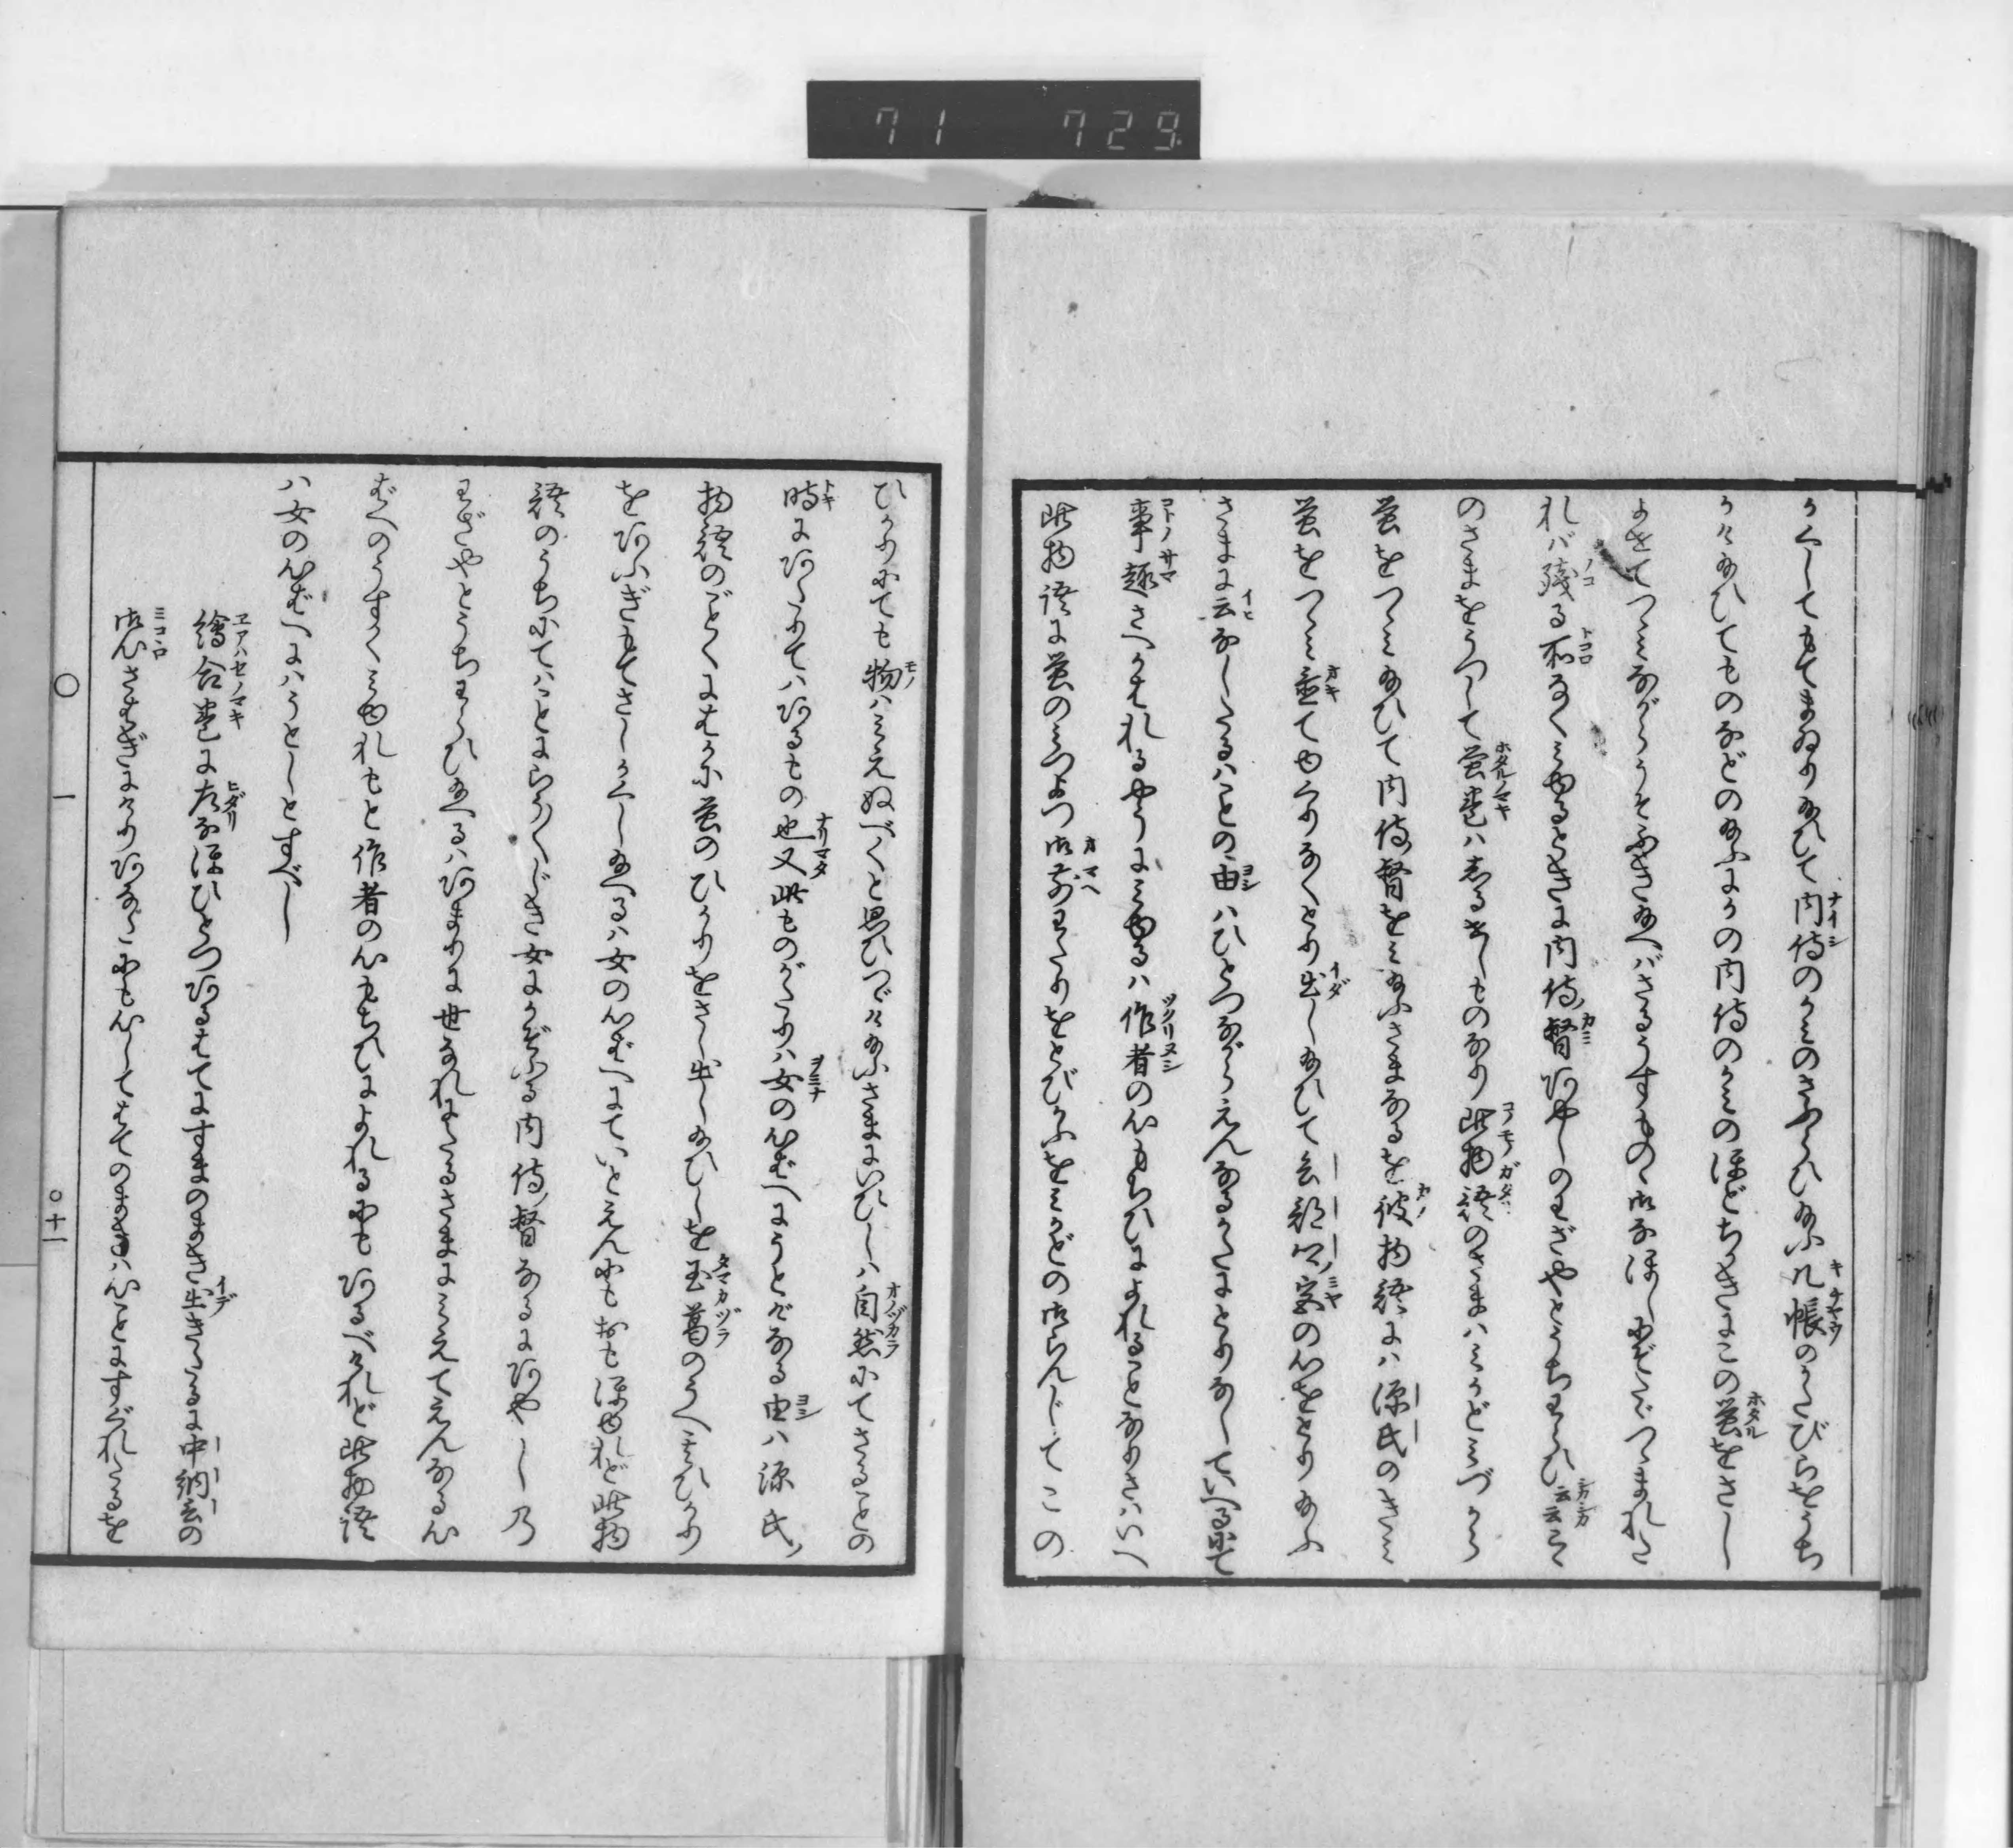 71 729
かくしてもてまゐり給ひて内侍のかみのさふらひ給ふ几帳のかたびらをうち
かけ給ひてものなどのたまふにかの内侍のかみのほどちかきにこの蛍をさし
よせてつゝみながらうそふき給へばさるうすものゝ御なほしにぞつゝまれた
れバ残る所なくみゆるときに内侍督あやしのわざやとうちわらひ云云こそ
のさまをうつして蛍巻ハ書るしものなり此物語のさまハみかどみづから
蛍をつゝみ給ひて内侍督をみ給ふさまなるを彼物語にハ源氏のきみ
蛍をつゝミ置てゆくりなくとり出し給ひて兵部卿ノ宮の心をとり給ふ
さまに云なしたるハことの由ハひとつながらえんなるかたにとりなしていへるにて
事趣さへかはれるやうにみゆるハ作者の心もちひによれることなりさハいへ
此物語に蛍のミつよつ御前わたりをとびかふをミかどの御らんじてこの
ひかりにても物ハみえぬべくと思ひつゞけ給ふさまにいひしハ自然にてさることの
時にあたりてハあるもの也又此ものがたりハ女の心ばへにうとげなる由ハ源氏ノ
物語のごとくにはかに蛍のひかりをさし出し給ひしを玉葛のうへきひかり
をあふぎもてさしかくし給へるハ女の心ばへにていとえんにもおもほゆれど此物
語のうちにてハことにらうたくじき女にかぞふる内侍ノ督なるにあやしの
わざやとうちわらひ給へるハあまりに世なれたるさまにみえてえんなる心
ばへのうすくみゆれもと作者の心もちひによれるにもあるべけれど此物語
ハ女の心ばへにハうとしとすべし
繪合巻に左なほひとつあるはてにすまのまき出きたるに中納言の
御心さわぎにけりあなたにも心してはてのまきハ心ことにすぐれたるを
〇 一 〇十一